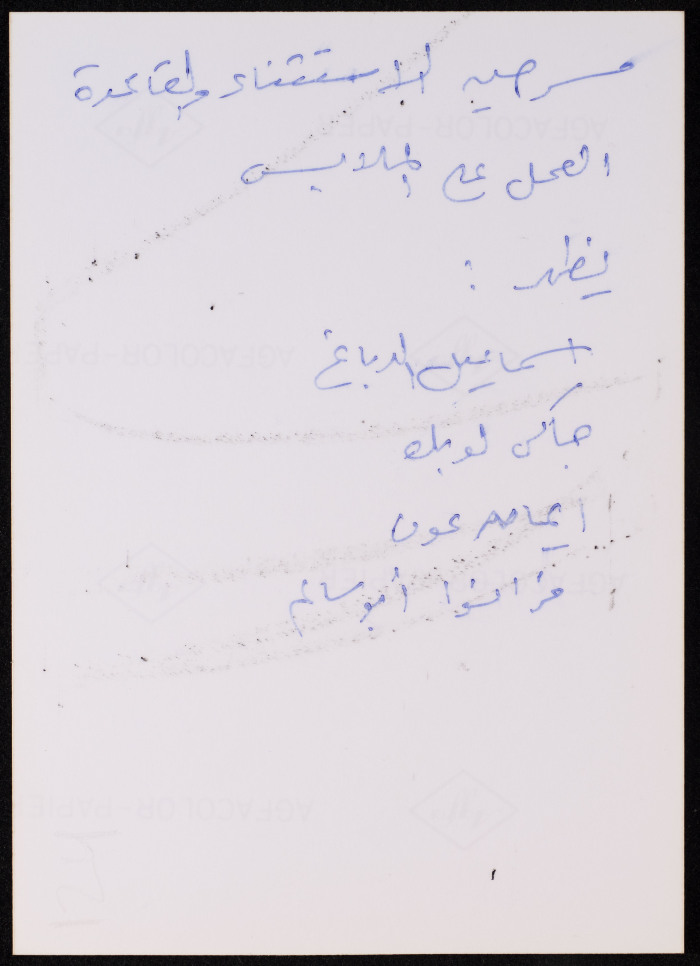 مسرحيه الاستثناء والقاعدة
العمل على الملابس
يظهر :
اسماعيل الدباغ
جاكي لوبك
ايمان عون
فرانسوا ابو سالم
AGFACOLOR-PAPIER
AGFACOLOR-PAPIER
AGFACOLOR-PAPIER
124